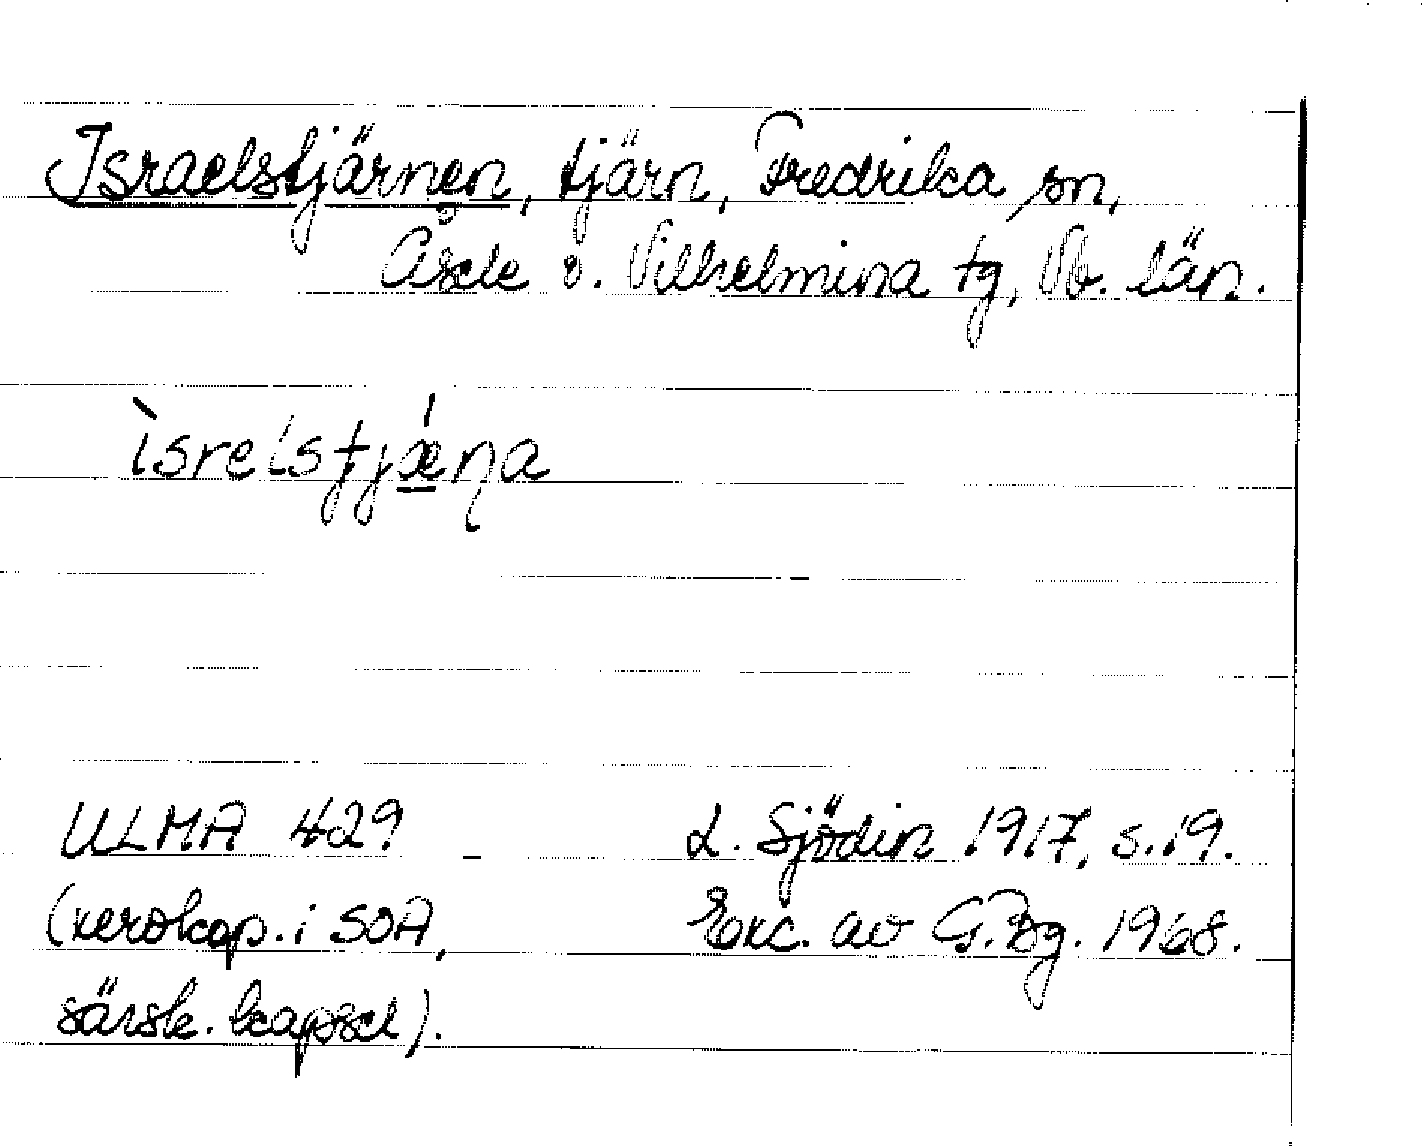 Israelstjärnen, tjärn, Fredrika sn,
Åsele o. Vilhelmina tg, Vb. län.
ìsrelstjǽṇa
ULMA 429
L. Sjödin 1917, s.19.
(xerokop. i SOA,
Exc. av G.Bg. 1968.
särsk. kapsel).